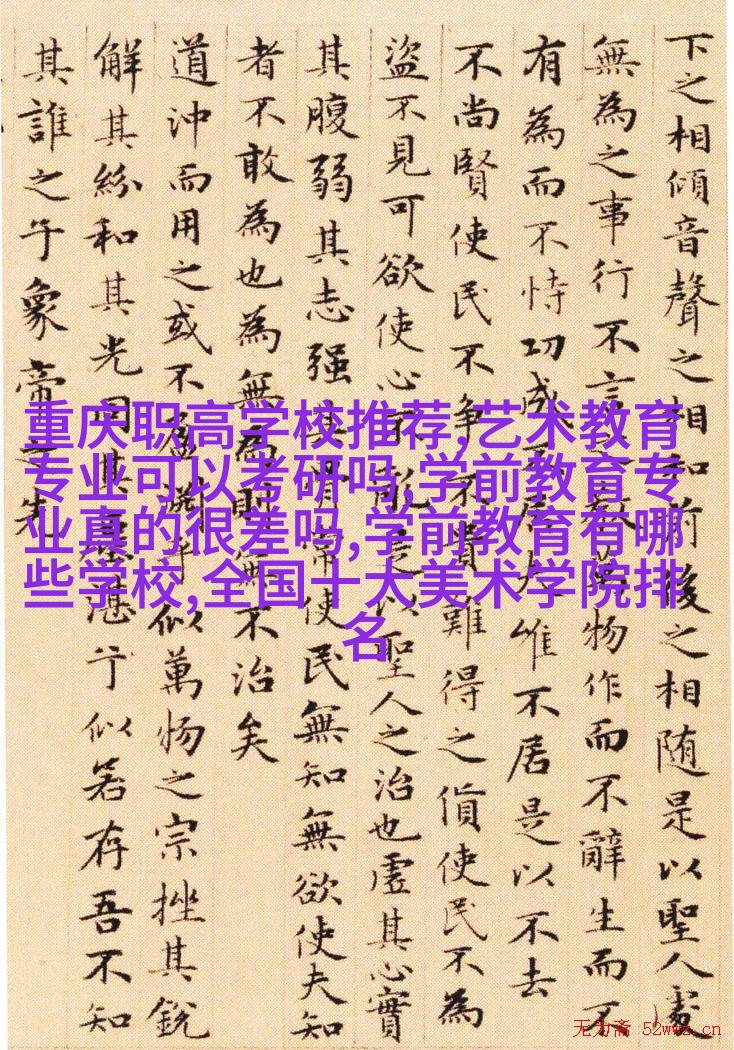 下之相傾音聲之相和前後之相随是以聖人處
無為之事行不言之教萬物作而不辭生而不
有為而不恃功成不居夫惟不居是以不去
不尚賢使民不争不貴難得之貨使民不為
盗不見可欲使心不亂是以聖人之治也虛其心實
其腹弱其志强其骨常使民無知無欲使夫知
者不敢為也為無為則無不治矣
道沖而用之或不盈淵乎似萬物之宗挫其銳
解其紛和其光同其塵湛兮似若存吾不知
其誰之子象帝之先
重庆职高学校推荐,艺术教育
专业可以考研吗,学前教育专
业真的很差吗,学前教育有哪
些学校,全国十大美术学院排
名
无为斋 52wwz.cn